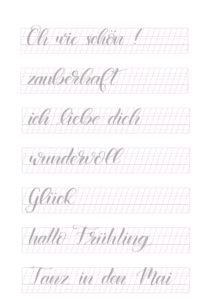 Oh wie schön !
zauberhaft
ich liebe dich
wundervoll
Glück
hallo Frühling
Tanz in den Mai